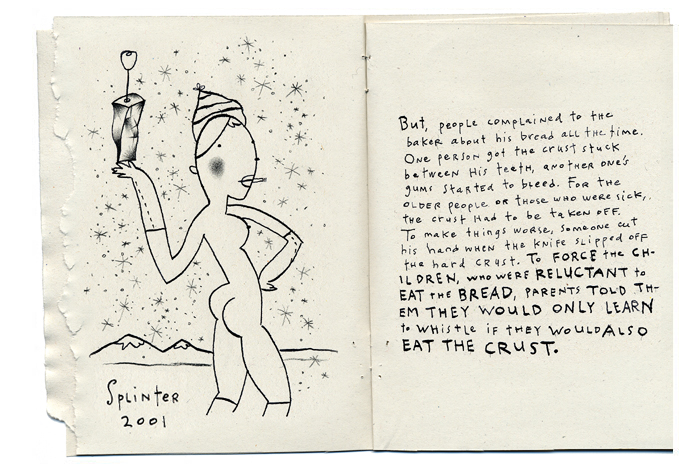 Splinter
2001
But, people complained to the
baker about his bread all the time.
One person got the crust stuck
between his teeth, another one's
gums started to bleed. For the
older people or those who were sick,
the crust had to be taken off.
To make things worse, someone cut
his hand when the knife slipped off
the hard crust. To FORCE the CH-
ILDREN, who were RELUCTANT to
EAT the BREAD, PARENTS TOLD TH-
EM THEY WOULD ONLY LEARN
to WHISTLE if THEY WOULD ALSO
EAT THE CRUST.